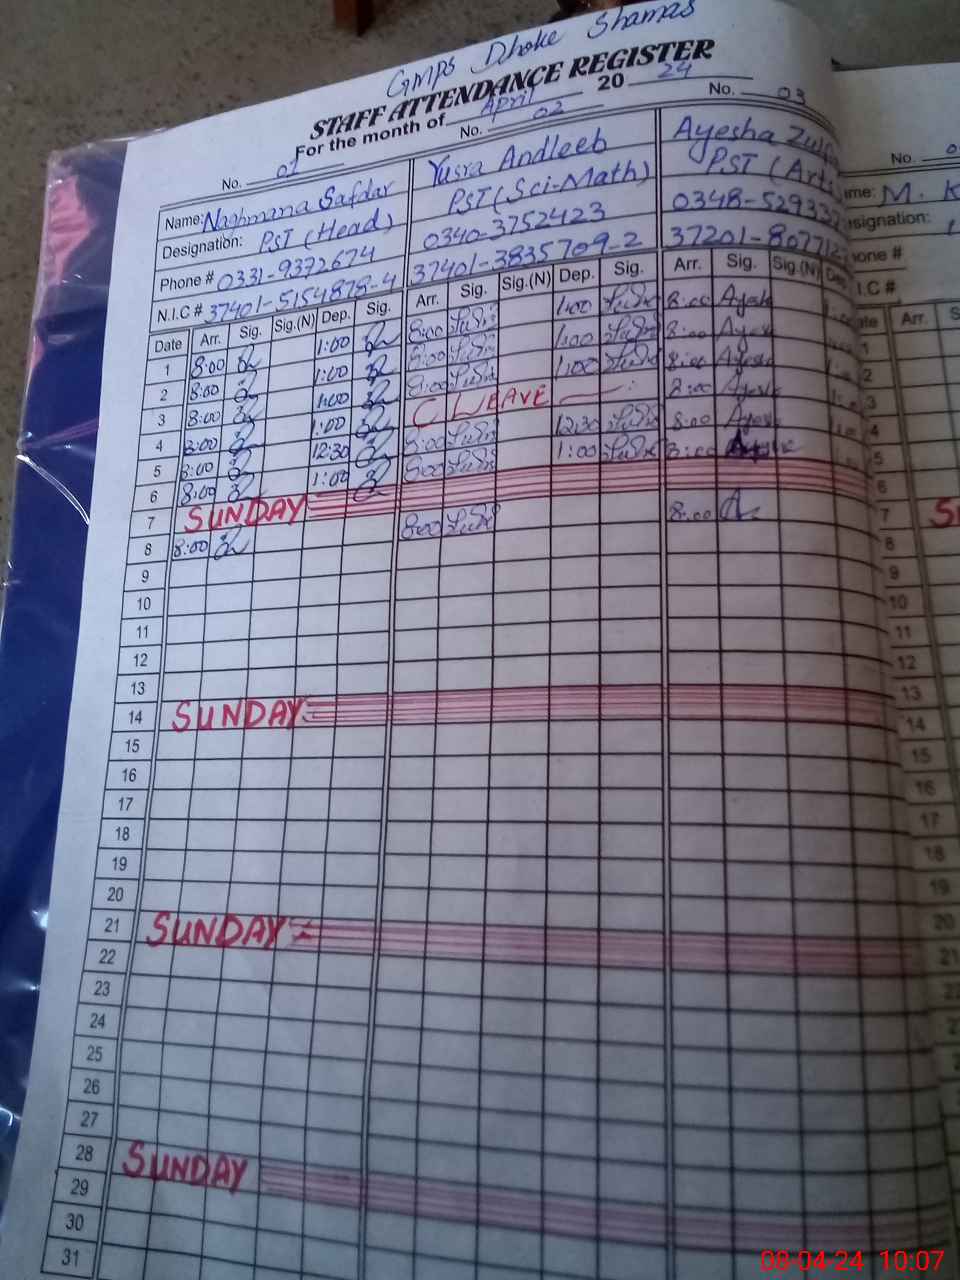 GMPS Dhoke Shamas
STAFF ATTENDANCE REGISTER
For the month of April 20 24
No. 01 No. 02 No. 03
Name: Naghmana Safdar Yusra Andleeb Ayesha
Designation: PST (Head) PST (Sci-Math) PST (Arts
Phone # 0331-9372674 0340-3752423 0348-529337
N.I.C # 37401-5154878-4 37401-3835709-2 37201-807712
Date Arr. Sig. Sig.(N) Dep. Sig. Arr. Sig. Sig.(N) Dep. Sig. Arr. Sig. Sig.(N) Dep
1 8:00 1:00 8:00 1:00 8:00
2 8:00 1:00 8:00 1:00 8:00
3 8:00 1:00 8:00 1:00 8:00
4 8:00 1:00 C LEAVE 8:00
5 8:00 12:30 8:00 12:30 8:00
6 8:00 1:00 8:00 1:00 8:00
7 SUNDAY
8 8:00 8:00 8:00
9
10
11
12
13
14 SUNDAY
15
16
17
18
19
20
21 SUNDAY
22
23
24
25
26
27
28 SUNDAY
29
30
31
No.
M. K
Arr.
1
2
3
4
5
6
7
8
9
10
11
12
13
14
15
16
17
18
19
20
21
08-04-24 10:07